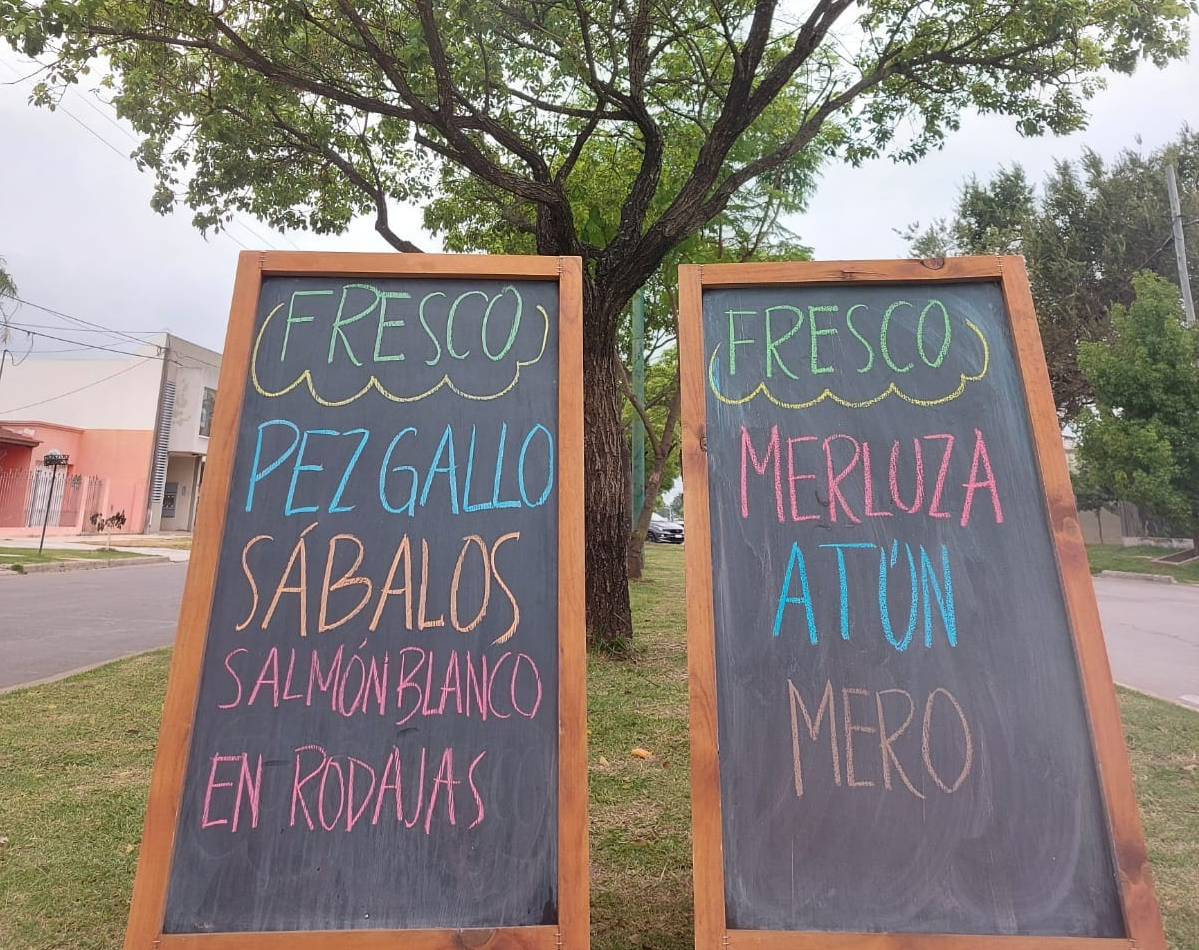 FRESCO
PEZ GALLO
SÁBALOS
SALMÓN BLANCO
EN RODAJAS
FRESCO
MERLUZA
ATÚN
MERO